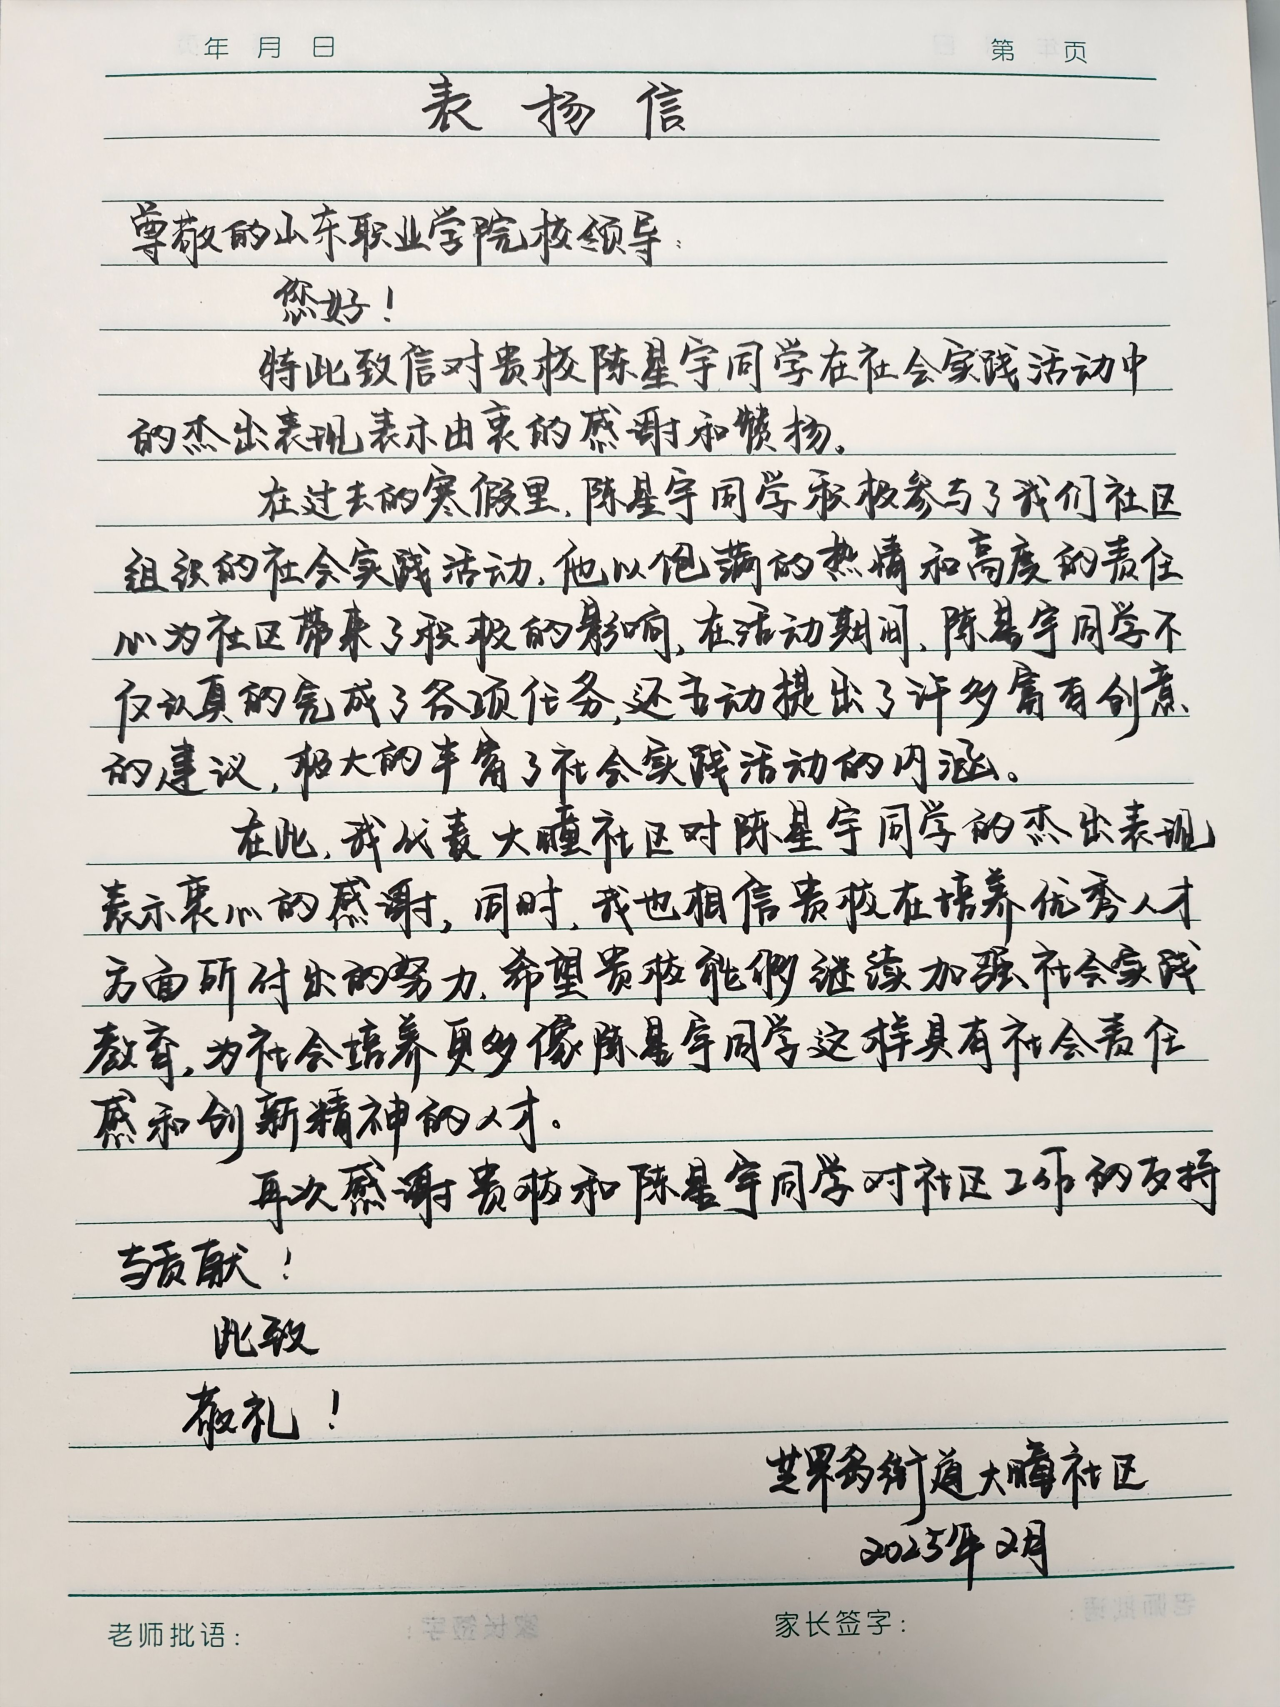 年 月 日 第 页
表扬信
尊敬的山东职业学院校领导:
您好!
特此致信对贵校陈星宇同学在社会实践活动中
的杰出表现表示由衷的感谢和赞扬。
在过去的寒假里,陈星宇同学积极参与了我们社区
组织的社会实践活动,他以饱满的热情和高度的责任
心为社区带来了积极的影响,在活动期间,陈星宇同学不
仅认真的完成了各项任务,还主动提出了许多富有创意
的建议,极大的丰富了社会实践活动的内涵。
在此,我代表大疃社区对陈星宇同学的杰出表现
表示衷心的感谢,同时,我也相信贵校在培养优秀人才
方面所付出的努力,希望贵校能够继续加强社会实践
教育,为社会培养更多像陈星宇同学这样具有社会责任
感和创新精神的人才。
再次感谢贵校和陈星宇同学对社区工作的支持
与贡献!
此致
敬礼!
芝罘岛街道大疃社区
2025年2月
老师批语: 家长签字: